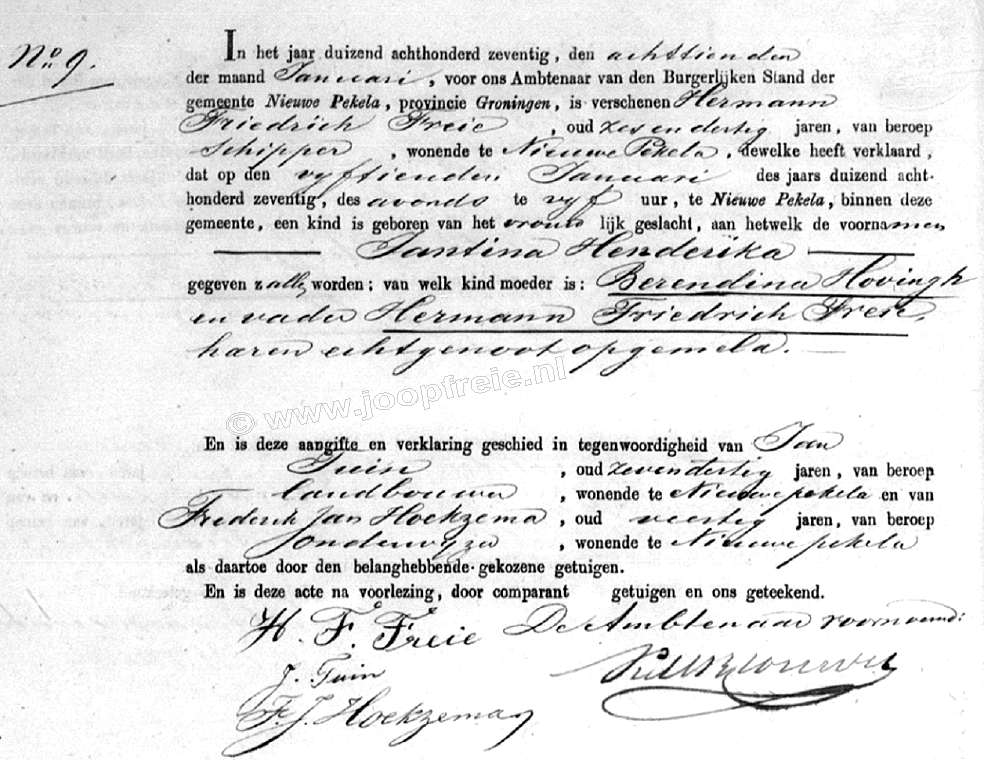 No. 9.
In het jaar duizend achthonderd zeventig, den achttienden
der maand Januari, voor ons Ambtenaar van den Burgerlijken Stand der
gemeente Nieuwe Pekela, provincie Groningen, is verschenen Hermann
Friedrich Freie, oud zes en dertig jaren, van beroep
Schipper, wonende te Nieuwe Pekela, dewelke heeft verklaard,
dat op den vyftienden Januari des jaars duizend acht-
honderd zeventig, des avonds te vyf uur, te Nieuwe Pekela, binnen deze
gemeente, een kind is geboren van het vrouwlijk geslacht, aan hetwelk de voornamen
Jantina Henderika
gegeven zullen worden; van welk kind moeder is: Berendina Hovingh
en vader Hermann Friedrich Freie,
haren echtgenoot opgemeld.
© www.joopfreie.nl
En is deze aangifte en verklaring geschied in tegenwoordigheid van Jan
Tuin, oud zevendertig jaren, van beroep
landbouwer, wonende te Nieuwe pekela en van
Frederik Jan Hoekzema, oud veertig jaren, van beroep
wonende te Nieuwe pekela
als daartoe door den belanghebbende gekozene getuigen.
En is deze acte na voorlezing, door comparant getuigen en ons geteekend.
H. F. Freie De Ambtenaar voornoemd:
J. Tuin
F. J. Hoekzema